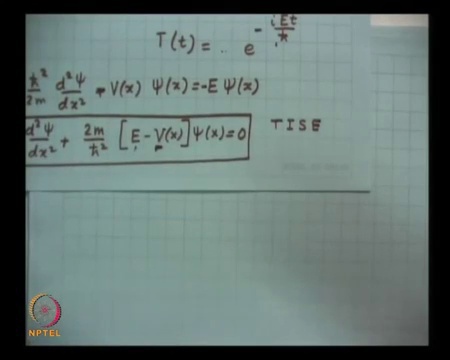 T(t) = e^{-iEt/ħ}
ħ²/2m d²Ψ/dx² - V(x) Ψ(x) = -E Ψ(x)
d²Ψ/dx² + 2m/ħ² [E - V(x)] Ψ(x) = 0 TISE
NPTEL